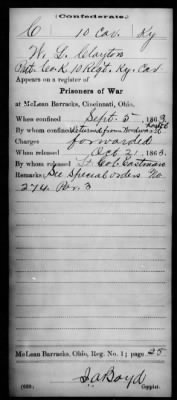 (Confederate.)
C 10 Cav. Ky
W. L. Clayton
Pvt. Co. K 10 Regt. Ky. Cav
Appears on a register
of
Prisoners of War
at McLean Barracks, Cincinnati, Ohio.
When confined Sept. 5, 1863
By whom confined Returned from Woodward Hospital
Charges forwarded
When released Oct 21, 1863.
By whom released Lt Col. Eastman
Remarks: See Special orders No.
274. Par. 3
McLean Barracks, Ohio, Reg. No. 1; page 25
J. A. Boyd
Copyist.